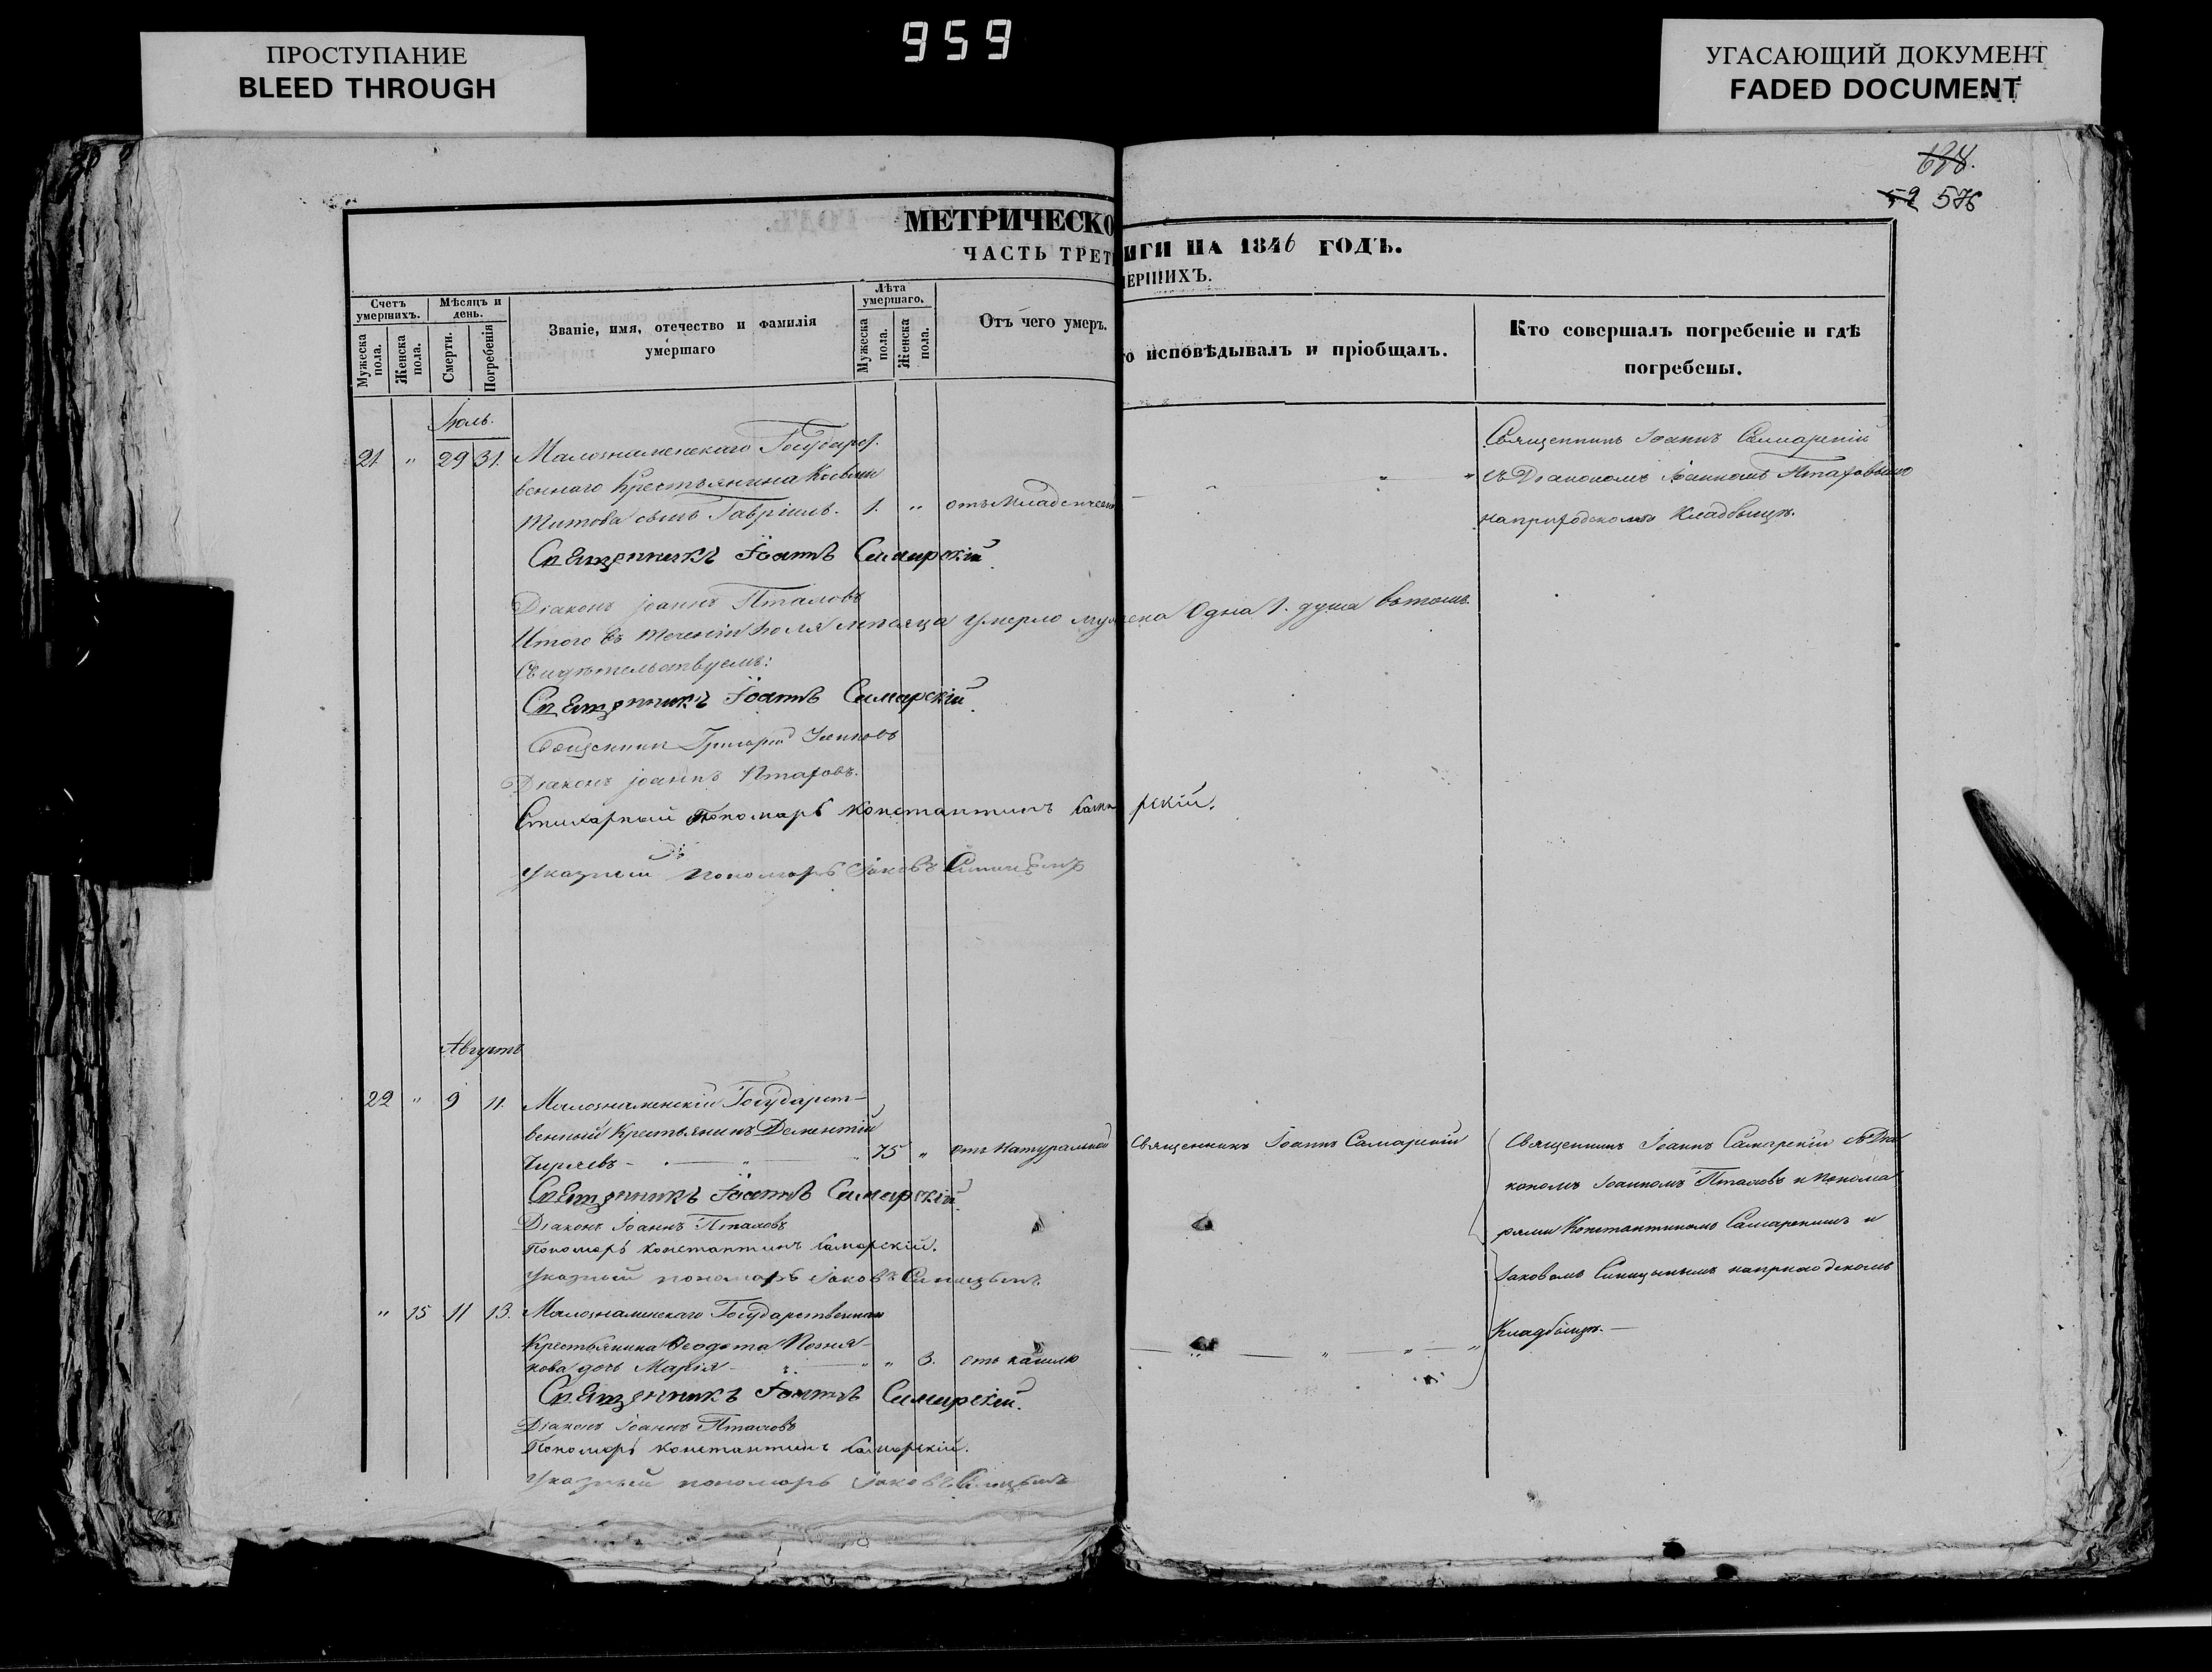 ПРОСТУПАНИЕ
BLEED THROUGH
959
УГАСАЮЩИЙ ДОКУМЕНТ
FADED DOCUMENT
52 576
МЕТРИЧЕСКО
ЧАСТЬ ТРЕТ
ИГИ НА 1846 ГОДЪ.
МЕРШИХЪ.
Счетъ умершихъ.
Мужеска пола.
Женска пола.
Мѣсяцъ и день.
Смерти.
Погребенія
Званіе, имя, отечество и фамилія
умершаго
Лѣта умершаго.
Мужеска пола.
Женска пола.
Отъ чего умеръ.
о исповѣдывалъ и пріобщалъ.
Кто совершалъ погребеніе и гдѣ
погребены.
Іюль.
21. " 29 31. Малознаменскаго Государст-
веннаго Крестьянина
Титова сынъ Гавріилъ. 1. " отъ младенческ
Священникъ Іоаннъ Самарскій
съ Діакономъ Іоанномъ
на приходскомъ кладбищѣ.
Священникъ Іоаннъ Самарскій
Діаконъ Іоаннъ
Итого въ теченіи Іюля мѣсяца умерло мужеска одна 1. душа въ томъ
Свидѣтельствуемъ:
Священникъ Іоаннъ Самарскій
Священникъ Григорій
Діаконъ Іоаннъ
Стихарный Пономарь Константинъ Самарскій.
Указный пономарь Іаковъ Синицынъ
Августъ
22 " 9 11. Малознаменскій Государст-
венный Крестьянинъ Дементій
Чиряевъ - 75 " отъ натуральной
Священникъ Іоаннъ Самарскій
Священникъ Іоаннъ Самарскій съ Діа
кономъ Іоанномъ и Понома
рями Константиномъ Самарскимъ и
Іаковомъ Синицынымъ на приходскомъ
Кладбищѣ.
Священникъ Іоаннъ Самарскій
Діаконъ Іоаннъ
Пономарь Константинъ Самарскій.
Указный пономарь Іаковъ Синицынъ
" 15 11 13. Малознаменскаго Государственнаго
Крестьянина Ѳеодота Позня-
кова дочь Марія - " 3. отъ кашлю
Священникъ Іоаннъ Самарскій.
Діаконъ Іоаннъ
Пономарь Константинъ Самарскій.
Указный пономарь Іаковъ Синицынъ